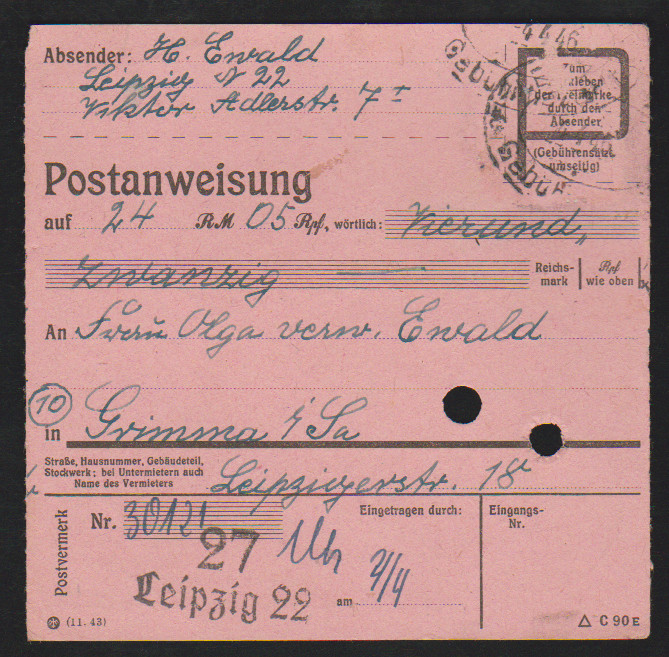 Absender: H. Ewald
Leipzig N 22
Viktor Adlerstr. 7 I
4.4.46
Zum
Aufkleben
der Freimarke
durch den
Absender
(Gebührensätze
umseitig)
Gebühr
Postanweisung
auf 24 RM 05 Rpf, wörtlich: Vierund„
zwanzig — Reichsmark | Rpf wie oben
An Frau Olga verw. Ewald
10
in Grimma i/Sa
Straße, Hausnummer, Gebäudeteil,
Stockwerk; bei Untermietern auch
Name des Vermieters
Leipzigerstr. 18
Postvermerk
Nr. 30121
27
Leipzig 22
Eingetragen durch:
am 4/4
Eingangs-
Nr.
(11. 43)
C 90 E